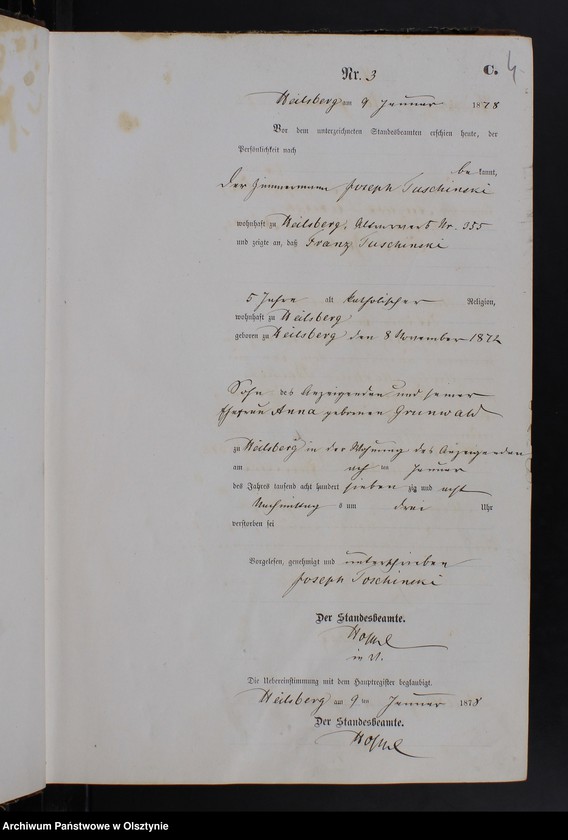 Nr. 3
C. 4
Heilsberg am 9 Januar 1878
Vor dem unterzeichneten Standesbeamten erschien heute, der
Persönlichkeit nach
be kannt,
der Zimmermann Joseph Tuschinski
wohnhaft zu Heilsberg, Nr. 355
und zeigte an, daß Franz Tuschinski
5 Jahre alt katholischer Religion,
wohnhaft zu Heilsberg
geboren zu Heilsberg den 8 November 1872
Sohn des Anzeigenden und seiner
Ehefrau Anna geborenen Grunwald
zu Heilsberg in der Wohnung des Anzeigenden
am ten Januar
des Jahres tausend acht hundert sieben zig und acht
Nachmittag s um drei Uhr
verstorben sei
Vorgelesen, genehmigt und unterschrieben
Joseph Toschinski
Der Standesbeamte.
in V.
Die Uebereinstimmung mit dem Hauptregister beglaubigt.
Heilsberg am 9 ten Januar 1878
Der Standesbeamte.
Archiwum Państwowe w Olsztynie